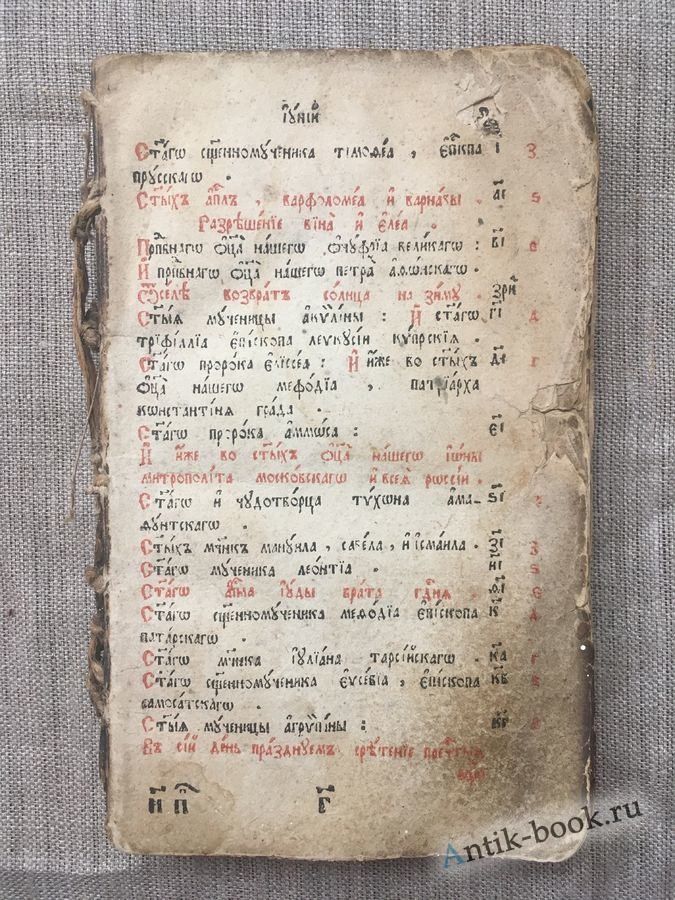 і҆ꙋ́нїй
Ст҃а́гѡ сщ҃енномꙋ́ченика тїмоѳе́а , є҆пⷭ҇кпа і҃ З
прꙋ́сскагѡ .
Ст҃ы́хъ а҆пⷭ҇лъ , варѳоломе́а и҆ варна́вы . а҃і ѕ
Разрѣше́нїе вїна̀ и҆ є҆ле́а .
Прпⷣбнагѡ ѻ҆ц҃а̀ на́шегѡ ѻ҆нꙋ́фрїа вели́кагѡ : в҃і є
И҆ прпⷣбнагѡ ѻ҆ц҃а̀ на́шегѡ петра̀ а҆ѳѡ́нскагѡ .
Ѿсе́лѣ возвра́тъ со́лнца на зи́мꙋ .
Ст҃ы́ѧ мꙋ́ченицы а҆кѷли́ны : И҆ ст҃а́гѡ г҃і д
трїфи́ллїа є҆пі́скопа леѵкꙋсі́и кѵ́прскїѧ .
Ст҃а́гѡ проро́ка є҆лїссе́а : И҆ и҆́же во ст҃ы́хъ д҃і г
ѻ҆ц҃а̀ на́шегѡ меѳо́дїа , патрїа́рха
константі́нѧ гра́да .
Ст҃а́гѡ проро́ка а҆ммѡ́са : є҃і
И҆ и҆́же во ст҃ы́хъ ѻ҆ц҃а̀ на́шегѡ і҆ѡ́ны
митрополі́та моско́вскагѡ и҆ всеѧ̀ рѡссі́и .
Ст҃а́гѡ и҆ чꙋдотво́рца тѵ́хѡна а҆ма- ѕ҃і
ѳꙋ́нтскагѡ .
Ст҃ы́хъ мч҃нкъ манꙋи́ла , саве́ла , и҆ і҆сма́ила . з҃і з
Ст҃а́гѡ мꙋ́ченика лео́нтїа . и҃і ѕ
Ст҃а́гѡ а҆пⷭ҇ла і҆ꙋ́ды бра́та гдⷭ҇нѧ . ѳ҃і є
Ст҃а́гѡ сщ҃енномꙋ́ченика меѳо́дїа є҆пі́скопа к҃ д
пата́рскагѡ .
Ст҃а́гѡ мч҃нка і҆ꙋлїа́на тарсі́йскагѡ . к҃а г
Ст҃а́гѡ сщ҃енномꙋ́ченика є҆ѵсе́вїа , є҆пі́скопа к҃в в
самоса́тскагѡ .
Ст҃ы́ѧ мꙋ́ченицы а҆грѷппі́ны : к҃г
Въ сі́й де́нь пра́зднꙋемъ срѣ́тенїе
Antik-book.ru